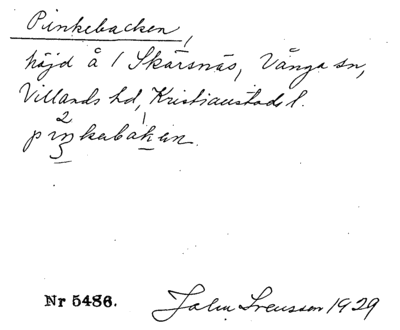 Pinkebacken,
höjd å / Skärsnäs, Vånga sn,
Villands hd, Kristianstads l.
Nr 5486. John Svensson 1929